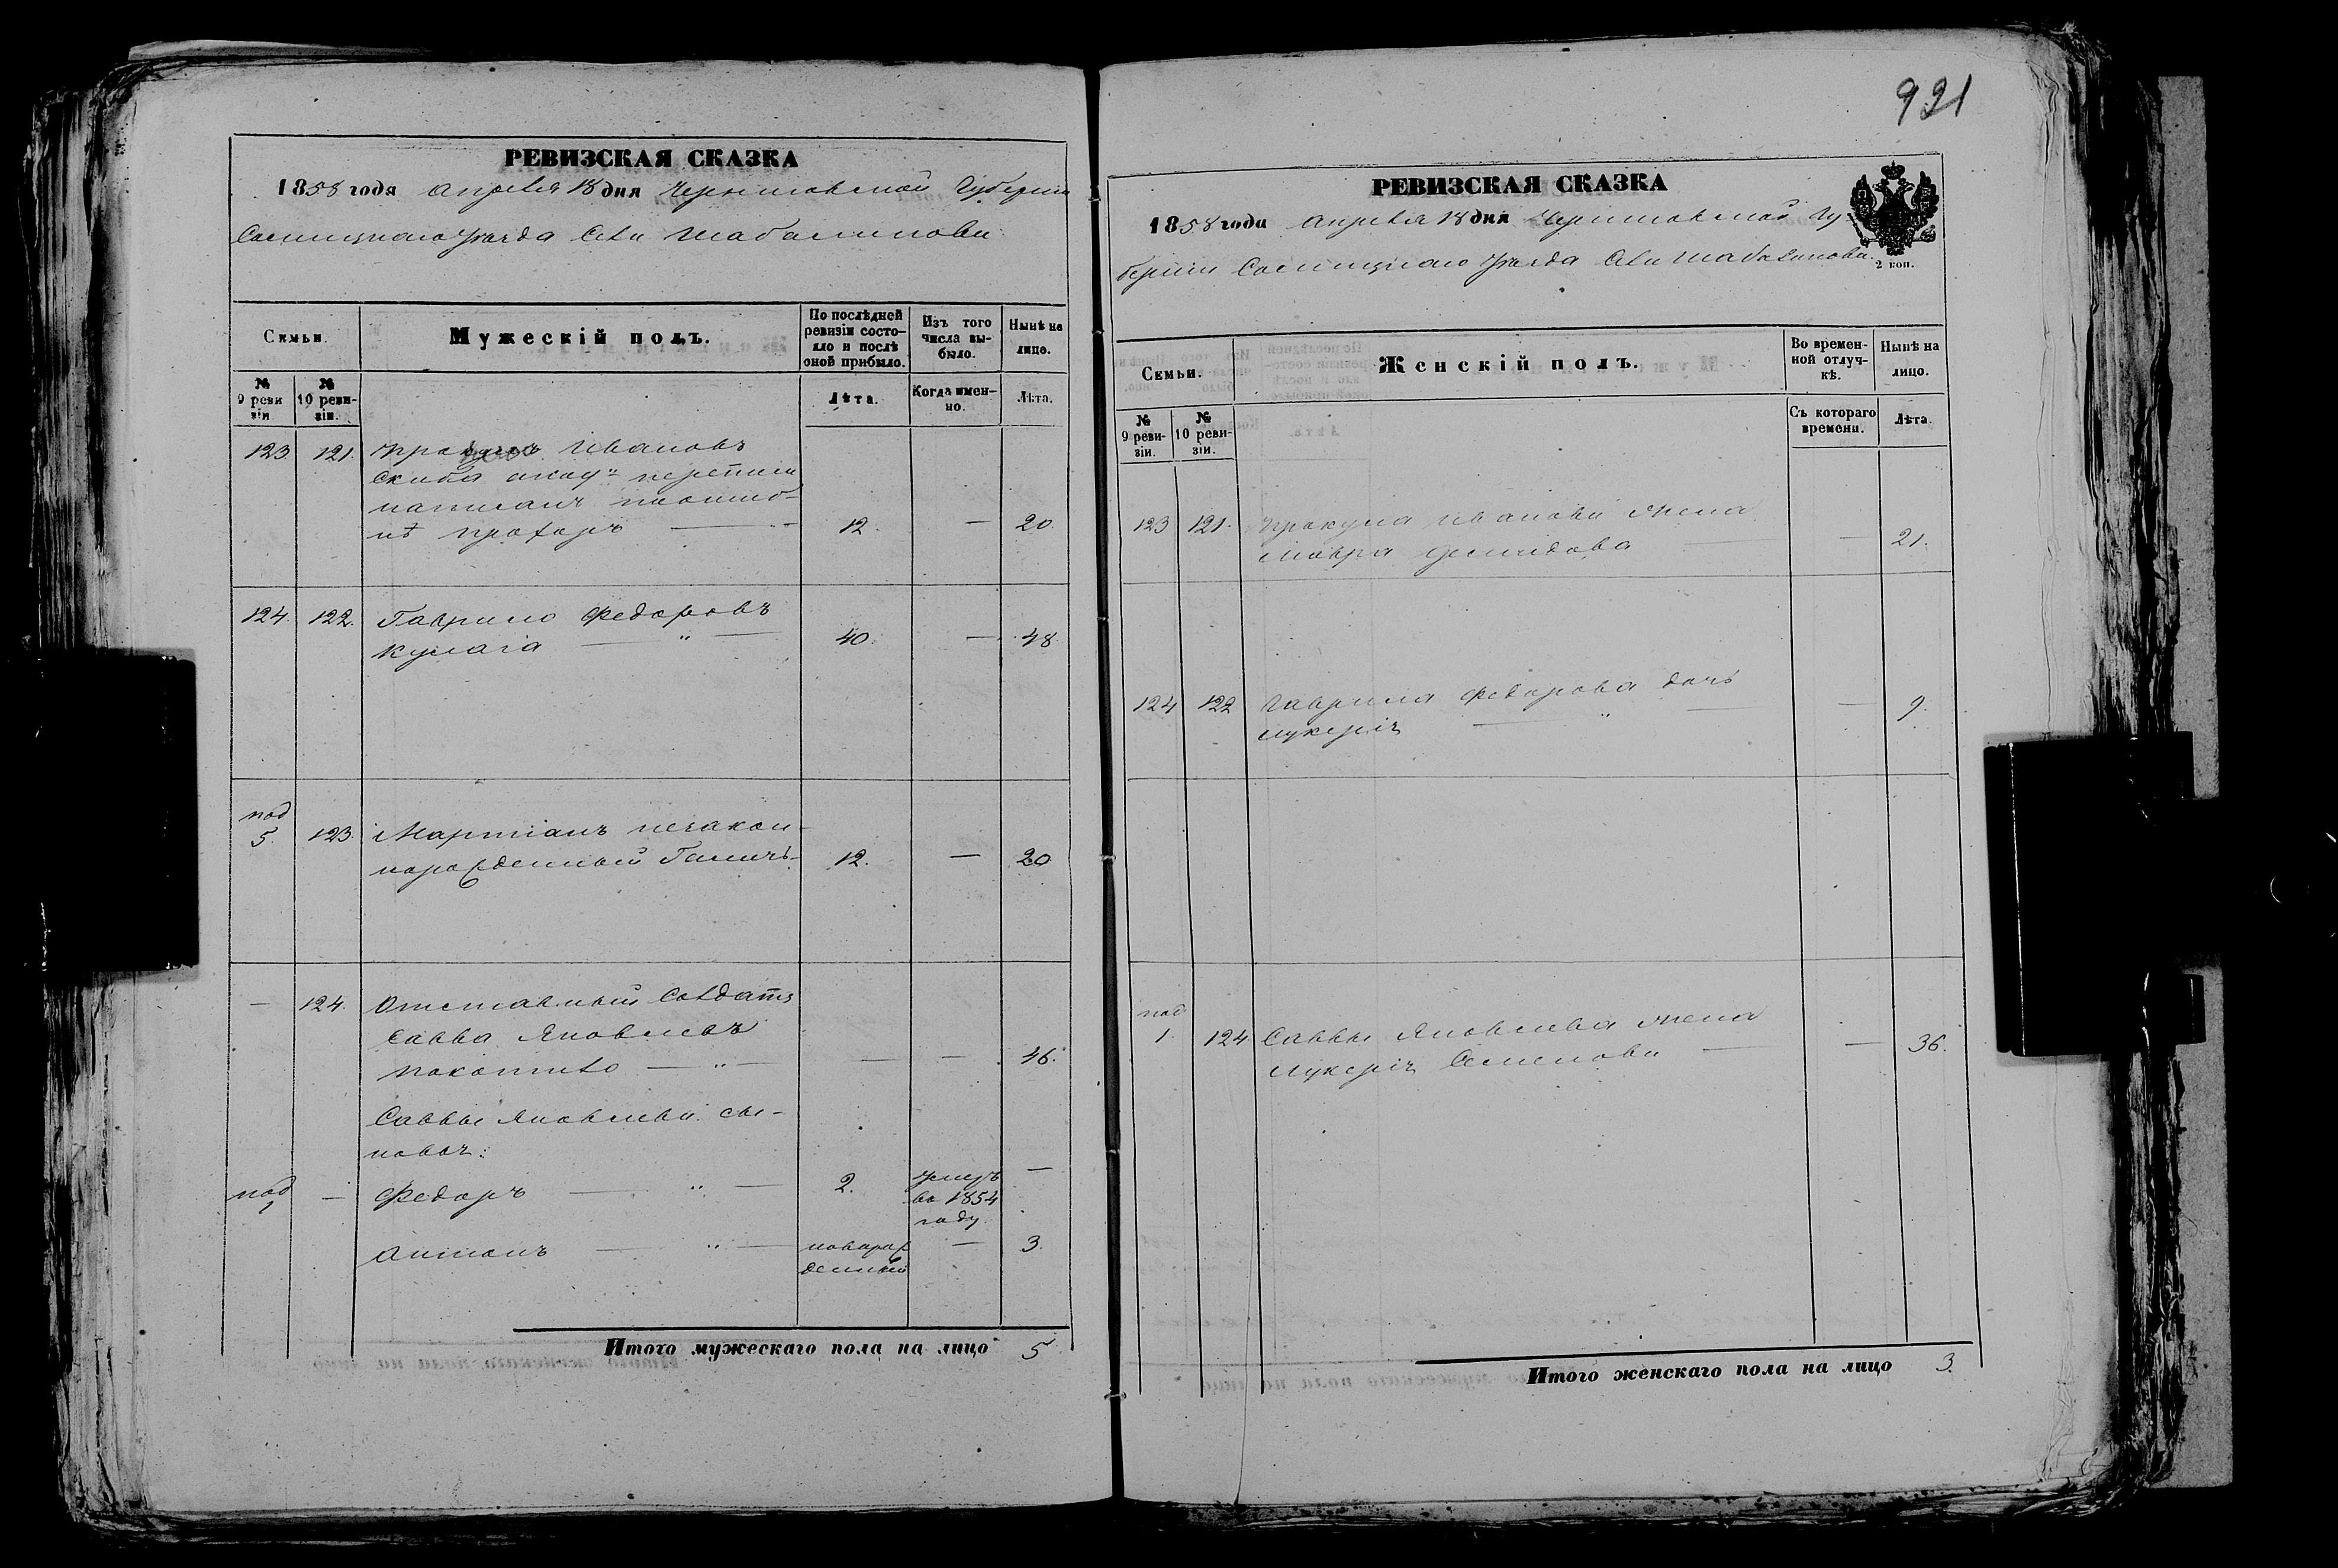 921
РЕВИЗСКАЯ СКАЗКА
1858 года Апреля 18 дня Черниговской Губернии
Сосницкаго Уезда Села Шабалинова
Семьи.
Мужескій полъ.
По послѣдней ревизіи состояло и послѣ оной прибыло.
Изъ того числа выбыло.
Нынѣ на лицо.
№ 9 ревизіи
№ 10 ревизіи.
Лѣта.
Когда именно.
Лѣта.
123. 121. Ивановъ
Скиба переписи
написанъ
Прохоръ 12. — 20.
124. 122. Гаврило Федоровъ
Кулага 40. — 48
под
5. 123. Мартіанъ незакон-
норожденный 12. — 20
— 124. Отставный Солдатъ
Савва Яковлевъ
— — 46.
Саввы Яковлева сы-
новья:
под 1 — Федоръ 2. умеръ —
въ 1854
году.
Антонъ новорож — 3.
денный
Итого мужескаго пола на лицо 5
РЕВИЗСКАЯ СКАЗКА
1858 года Апреля 18 дня Черниговской Гу-
берніи Сосницкаго Уезда Села Шабалинова.
2 коп.
Семьи.
Женскій полъ.
Во временной отлучкѣ.
Нынѣ на лицо.
№ 9 ревизіи.
№ 10 ревизіи.
Съ котораго времени.
Лѣта.
123 121. Прокула Иванова жена
Мавра Демидова — 21.
124 122 Гаврила Федорова дочь
Лукерія — 9.
под
1. 124 Саввы Яковлева жена
Лукерія Семенова — 36.
Итого женскаго пола на лицо 3.